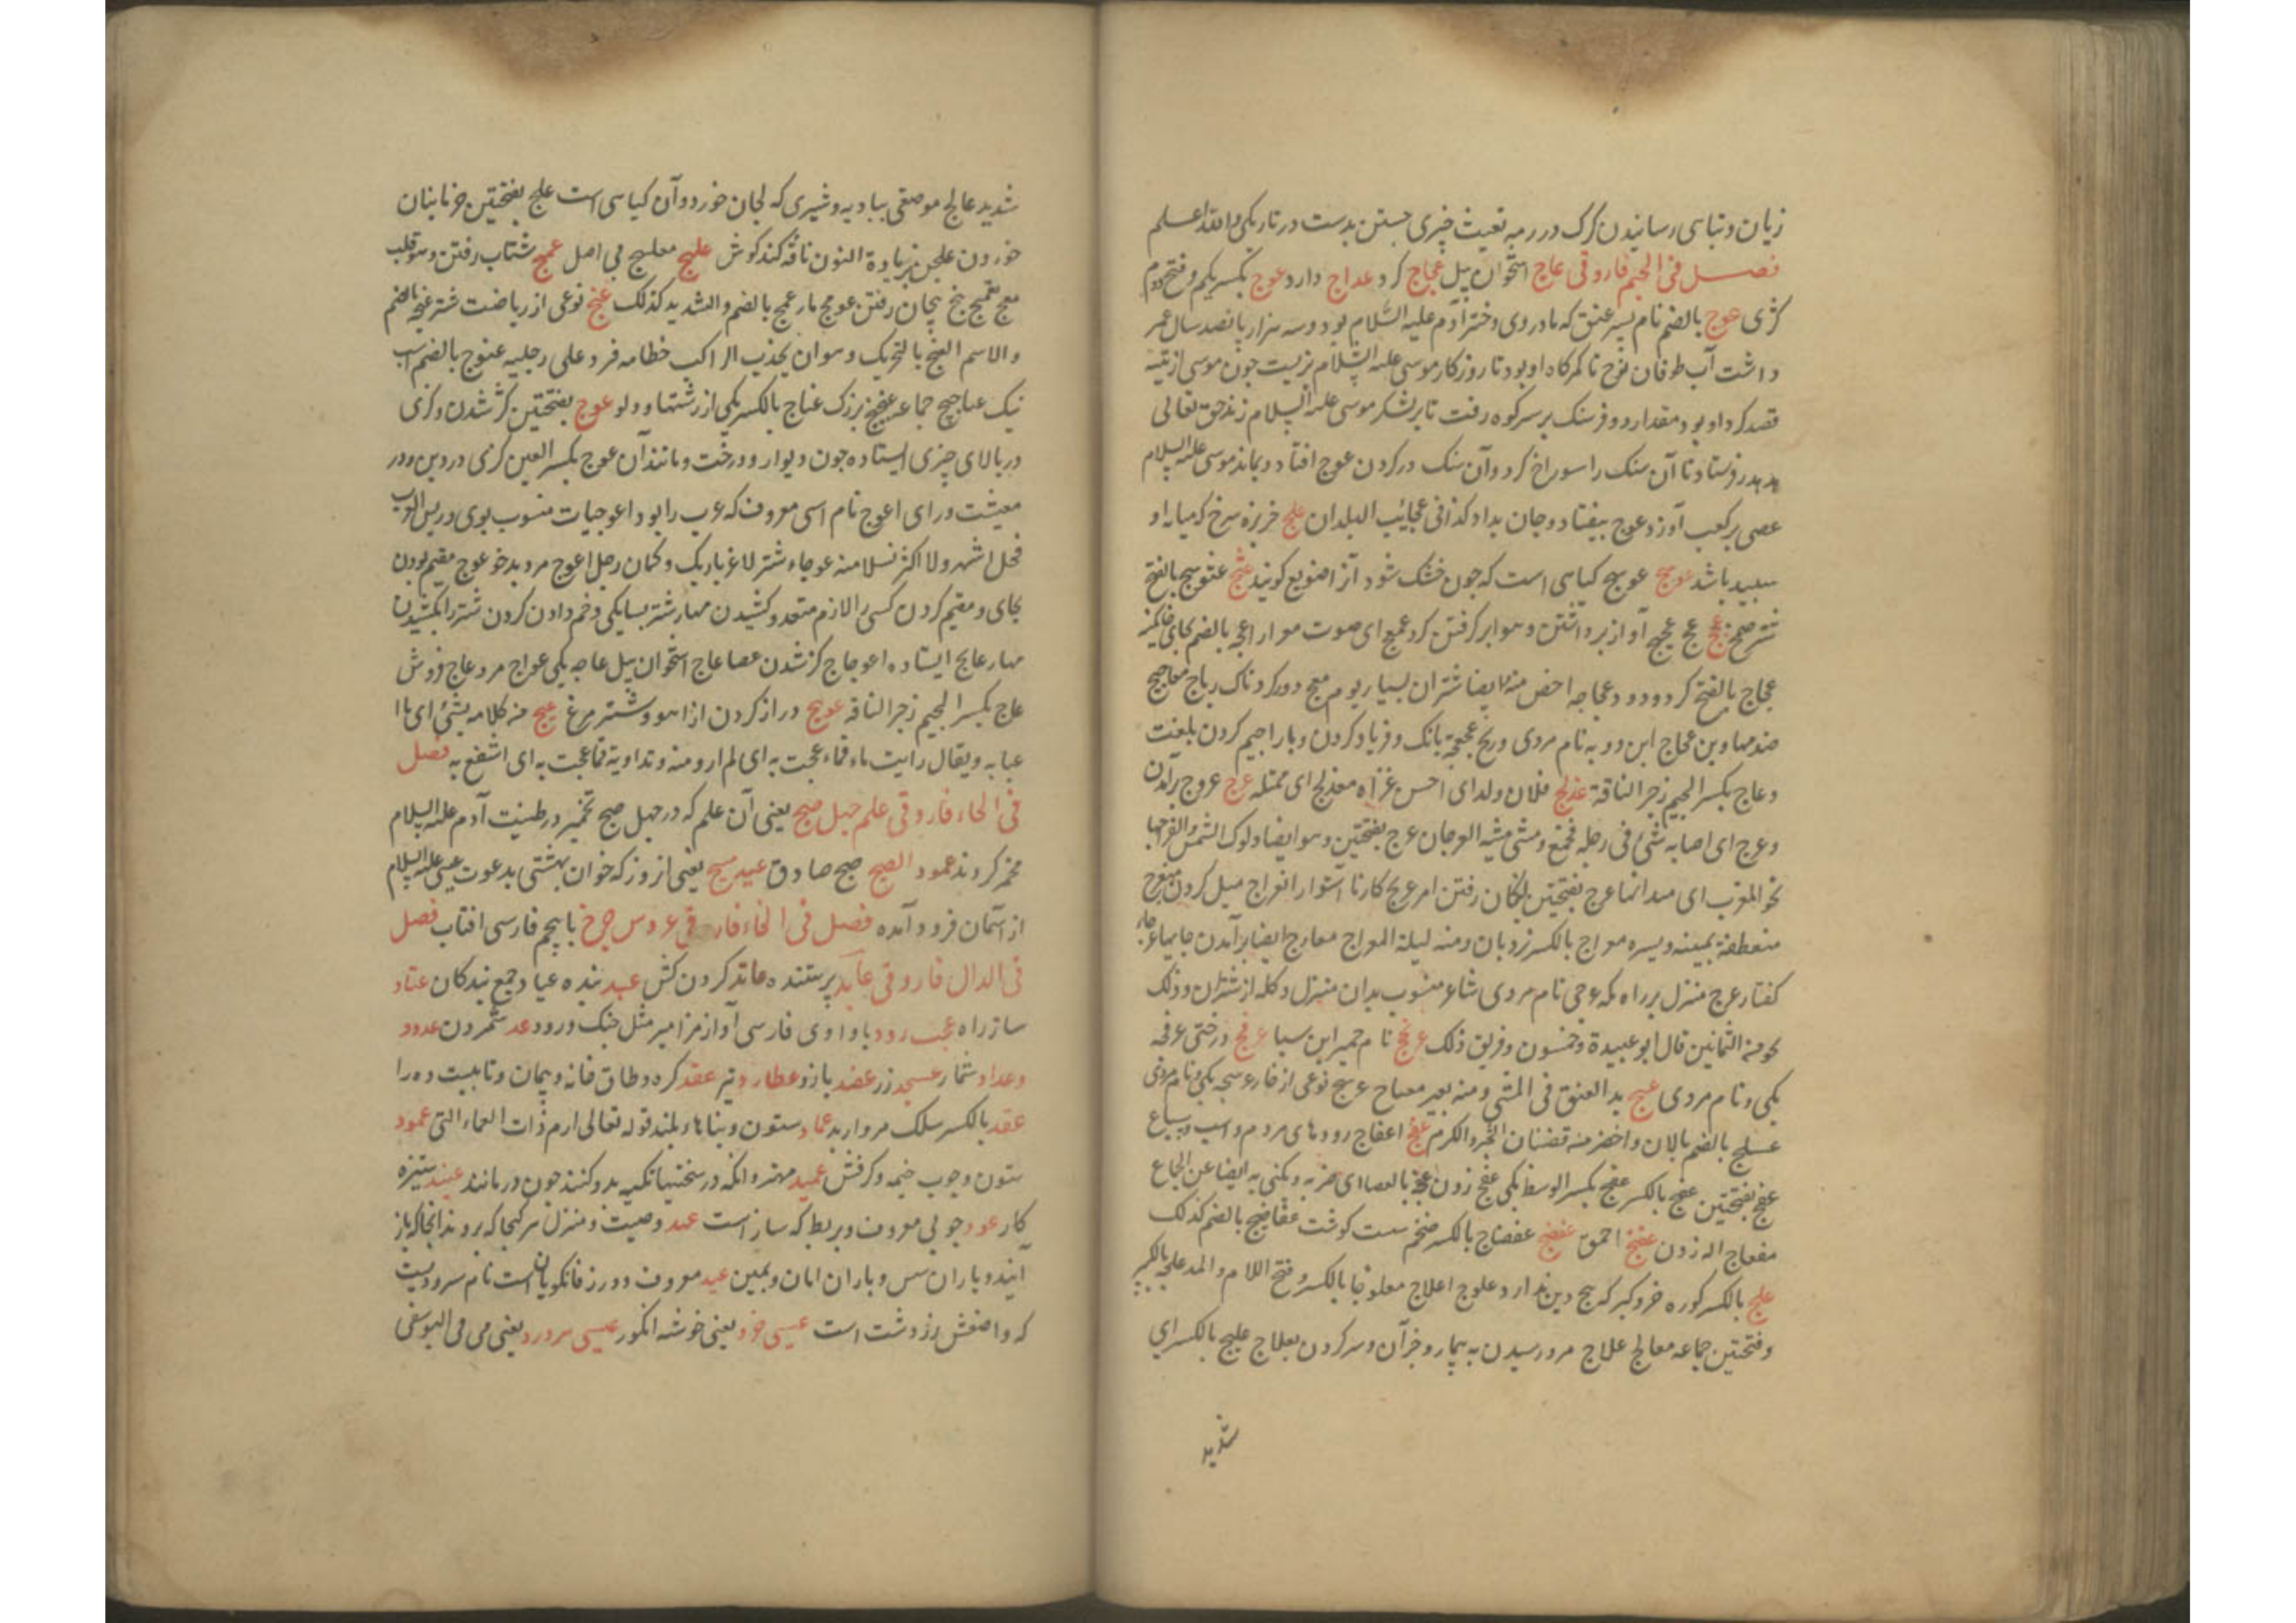 زیان و تباسی رسانیدن کرک در رمه تعیث چیزی جستن بدست در تاریکی والله اعلم
فصل فی الجیم فاروقی عاج استخوان پیل عجاج کرد عداج دارد عوج بکسر یکم و فتح دوم
کژی عوج بالضم نام پسر عنق که مادر وی دختر آدم علیه السلام بود و سه هزار پانصد سال عمر
داشت آب طوفان نوح تا کمرکاه او بود تا روزکار موسی علیه السلام بزیست چون موسی از تیه
قصد کرد او بود مقدار دو فرسنک بر سر کوه رفت تا بر لشکر موسی علیه السلام زند حق تعالی
هدهد فرستاد تا آن سنک را سوراخ کرد و آن سنک در کردن عوج افتاد و بماند موسی علیه السلام
عصی بر کعب آو زد عوج بیفتاد و جان بداد کذا فی عجائب البلدان علج خربزه سرخ که میانه او
سپید باشد عوسج عوسج کیاهی است که چون خشک شود آنرا ضویع کویند عثج عثوثج بالفتح
شتر ضخم عج عج عجیج آواز برداشتن و هوا بر کرفتن کرد عجیج ای صوت هوارا عجه بالضم خاکینه
عجاج بالفتح کرد و دود و عجاجه اخص منه ایضا شتران بسیار یوم معج دور کردناک ریاح معاجیج
ضد مهاوین عجاج ابن روبه نام مردی وریح عجعجة بانک و فریاد کردن و یا را جیم کردن بلغت
و عاج بکسر الجیم زجر الناقة عذلج فلان ولده ای احسن غزاه معذلج ای ممتله عرج عروج برآمدن
و عرج ای اصابه شئ فی رجله فخمع ومشی مشیه العرجان عرج بفتحتین و هو ایضا دلوک الشمس انعراجها
نحو المغرب ای میدانها عرج بفتحتین لنکان رفتن امر عریج کار نا استوار انعراج میل کردن منعرج
منعطفه یمینه و یسره معراج بالکسر نردبان ومنه لیلة المعراج معارج ایضا برآمدن جایها عرجا
کفتار عرج منزل بر راه مکه عرجی نام مردی شاعر منسوب بدان منزل و کله از شتران و ذلک
نحو منه الثمانین قال ابو عبیدة وخمسون وفریق ذلک عرنج نام حمیر ابن سبا عرفج درختی عرفجه
یکی و نام مردی عسج مد العنق فی المشی و منه بعیر معساج عوسج نوعی از خار عوسجه یکی و نام مردی
عسلج بالضم بالان و اخضر منه قضبان الشجر والکرم عفج اعفاج رودهای مردم و اسب و سباع
عفج بفتحتین عفج بالکسر عفج بکسر الوسط یکی عفج زدن عفج بالعصا ای ضربه ویکنی به ایضا عن الجماع
مفعاج اله زدن عفنج احمق عفضج عفضاج بالکسر ضخم سست کوشت عفاضج بالضم کذلک
علج بالکسر کوره خر و کبر که هیچ دین ندارد علوج اعلاج معلوجا بالکسر و فتح اللام والمد علجه بالکسر
و فتحتین جماعه معالج علاج مرد رسیدن به بیمار و جز آن و سر کردن بعلاج علیج بالکسر ای
شدید
شدید عالج موضعی ببادیه و شیری که لجان خورد و آن کیاهی است علج بفتحتین خرما بنان
خوردن علجن بزیادة النون ناقه کند کوش علهج معلهج بی اصل عمج شتاب رفتن و هو قلب
معج تعمج پیچان رفتن عومج مار عمج بالضم والتشدید کذلک عنج نوعی از ریاضت شتر عنجه بالضم
والاسم العنج بالتحریک وهو ان یجذب الراکب خطامه فرد علی رجلیه عنجوج بالضم اسب
نیک عناجیج جماعه عنج بزرک عناج بالکسر یکی از رشتها و دلو عوج بفتحتین کژ شدن و کژی
در بالای چیزی ایستاده چون دیوار و درخت و مانند آن عوج بکسر العین کژی در دین و در
معیشت و رای اعوج نام اسی معروف که عرب را بود اعوجیات منسوب بوی و لیس العرب
فحل اشهر ولا اکثر نسلا منه عوجاء شتر لاغر باریک و کمان رجل اعوج مرد بدخو عوج مقیم بودن
بجای و مقیم کردن کسی را لازم متعد و کشیدن مهار شتر بسایکی و خم دادن کردن شتر را بکشیدن
مهار عایج ایستاده اعوجاج کژ شدن عصا عاج استخوان پیل عاجه یکی عواج مرد عاج فروش
عاج بکسر الجیم زجر الناقه عوهج دراز کردن از اهو و شتر مرغ عیج منه کلامه بشئ ای ما
عبابه ویقال رایت ماء فماء عجت به ای لم ارو منه و تداویت فما عجت به ای انتفع به فصل
فی الحاء فاروقی علم چهل صبح یعنی آن علم که در چهل صبح تخمیر در طینت آدم علیه السلام
مخمر کردند عمود الصبح صبح صادق عید مسیح یعنی از روز که خوان بهشتی بدعوت عیسی علیه السلام
از آسمان فرود آمده فصل فی الخاء فاروقی عروس چرخ با پیچم فارسی افتاب فصل
فی الدال فاروقی عابد پرستنده عاند کردن کش عبد بنده عباد جمع بندکان عتاد
ساز راه عجب رود با واوی فارسی آواز مزامیر مثل چنک و رود عد شمردن عدود
و عداد شمار عسجد زر عضد بازو عطارد تیر عقد کره و طاق خانه و پیمان و تابیست ده را
عقد بالکسر سلک مروارید عماد ستون و بناهاء بلند قوله تعالی ارم ذات العماد التی عمود
ستون و چوب خیمه و کرفتش عمید مهتر و انکه در سختیها تکیه بدو کنند چون در مانند عنید ستیزه
کار عود چوبی معروف و بربط که ساز است عهد وصیت و منزل هر کجا که بروند انجا که باز
آیند و باران پس و باران امان و یمین عید معروف و روز فانکویان است نام سرودیست
که واضعش زردشت است عیسی خرد یعنی خوشه انکور عیسی سردرد یعنی می فی الیوسفی